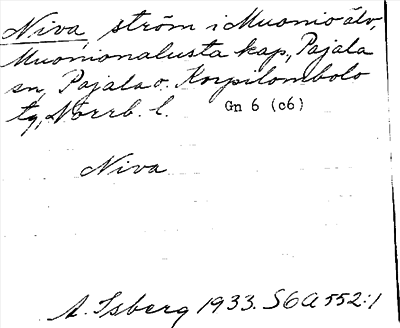 Niva, ström i Muonio älv,
Muonionalusta kap., Pajala
sn, Pajala o. Korpilombolo
tg, Norrb. l. Gn 6 (c6)
Niva
A. Isberg 1933. S6A552:1